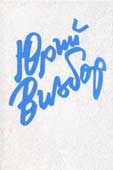 Юрий
Визбор